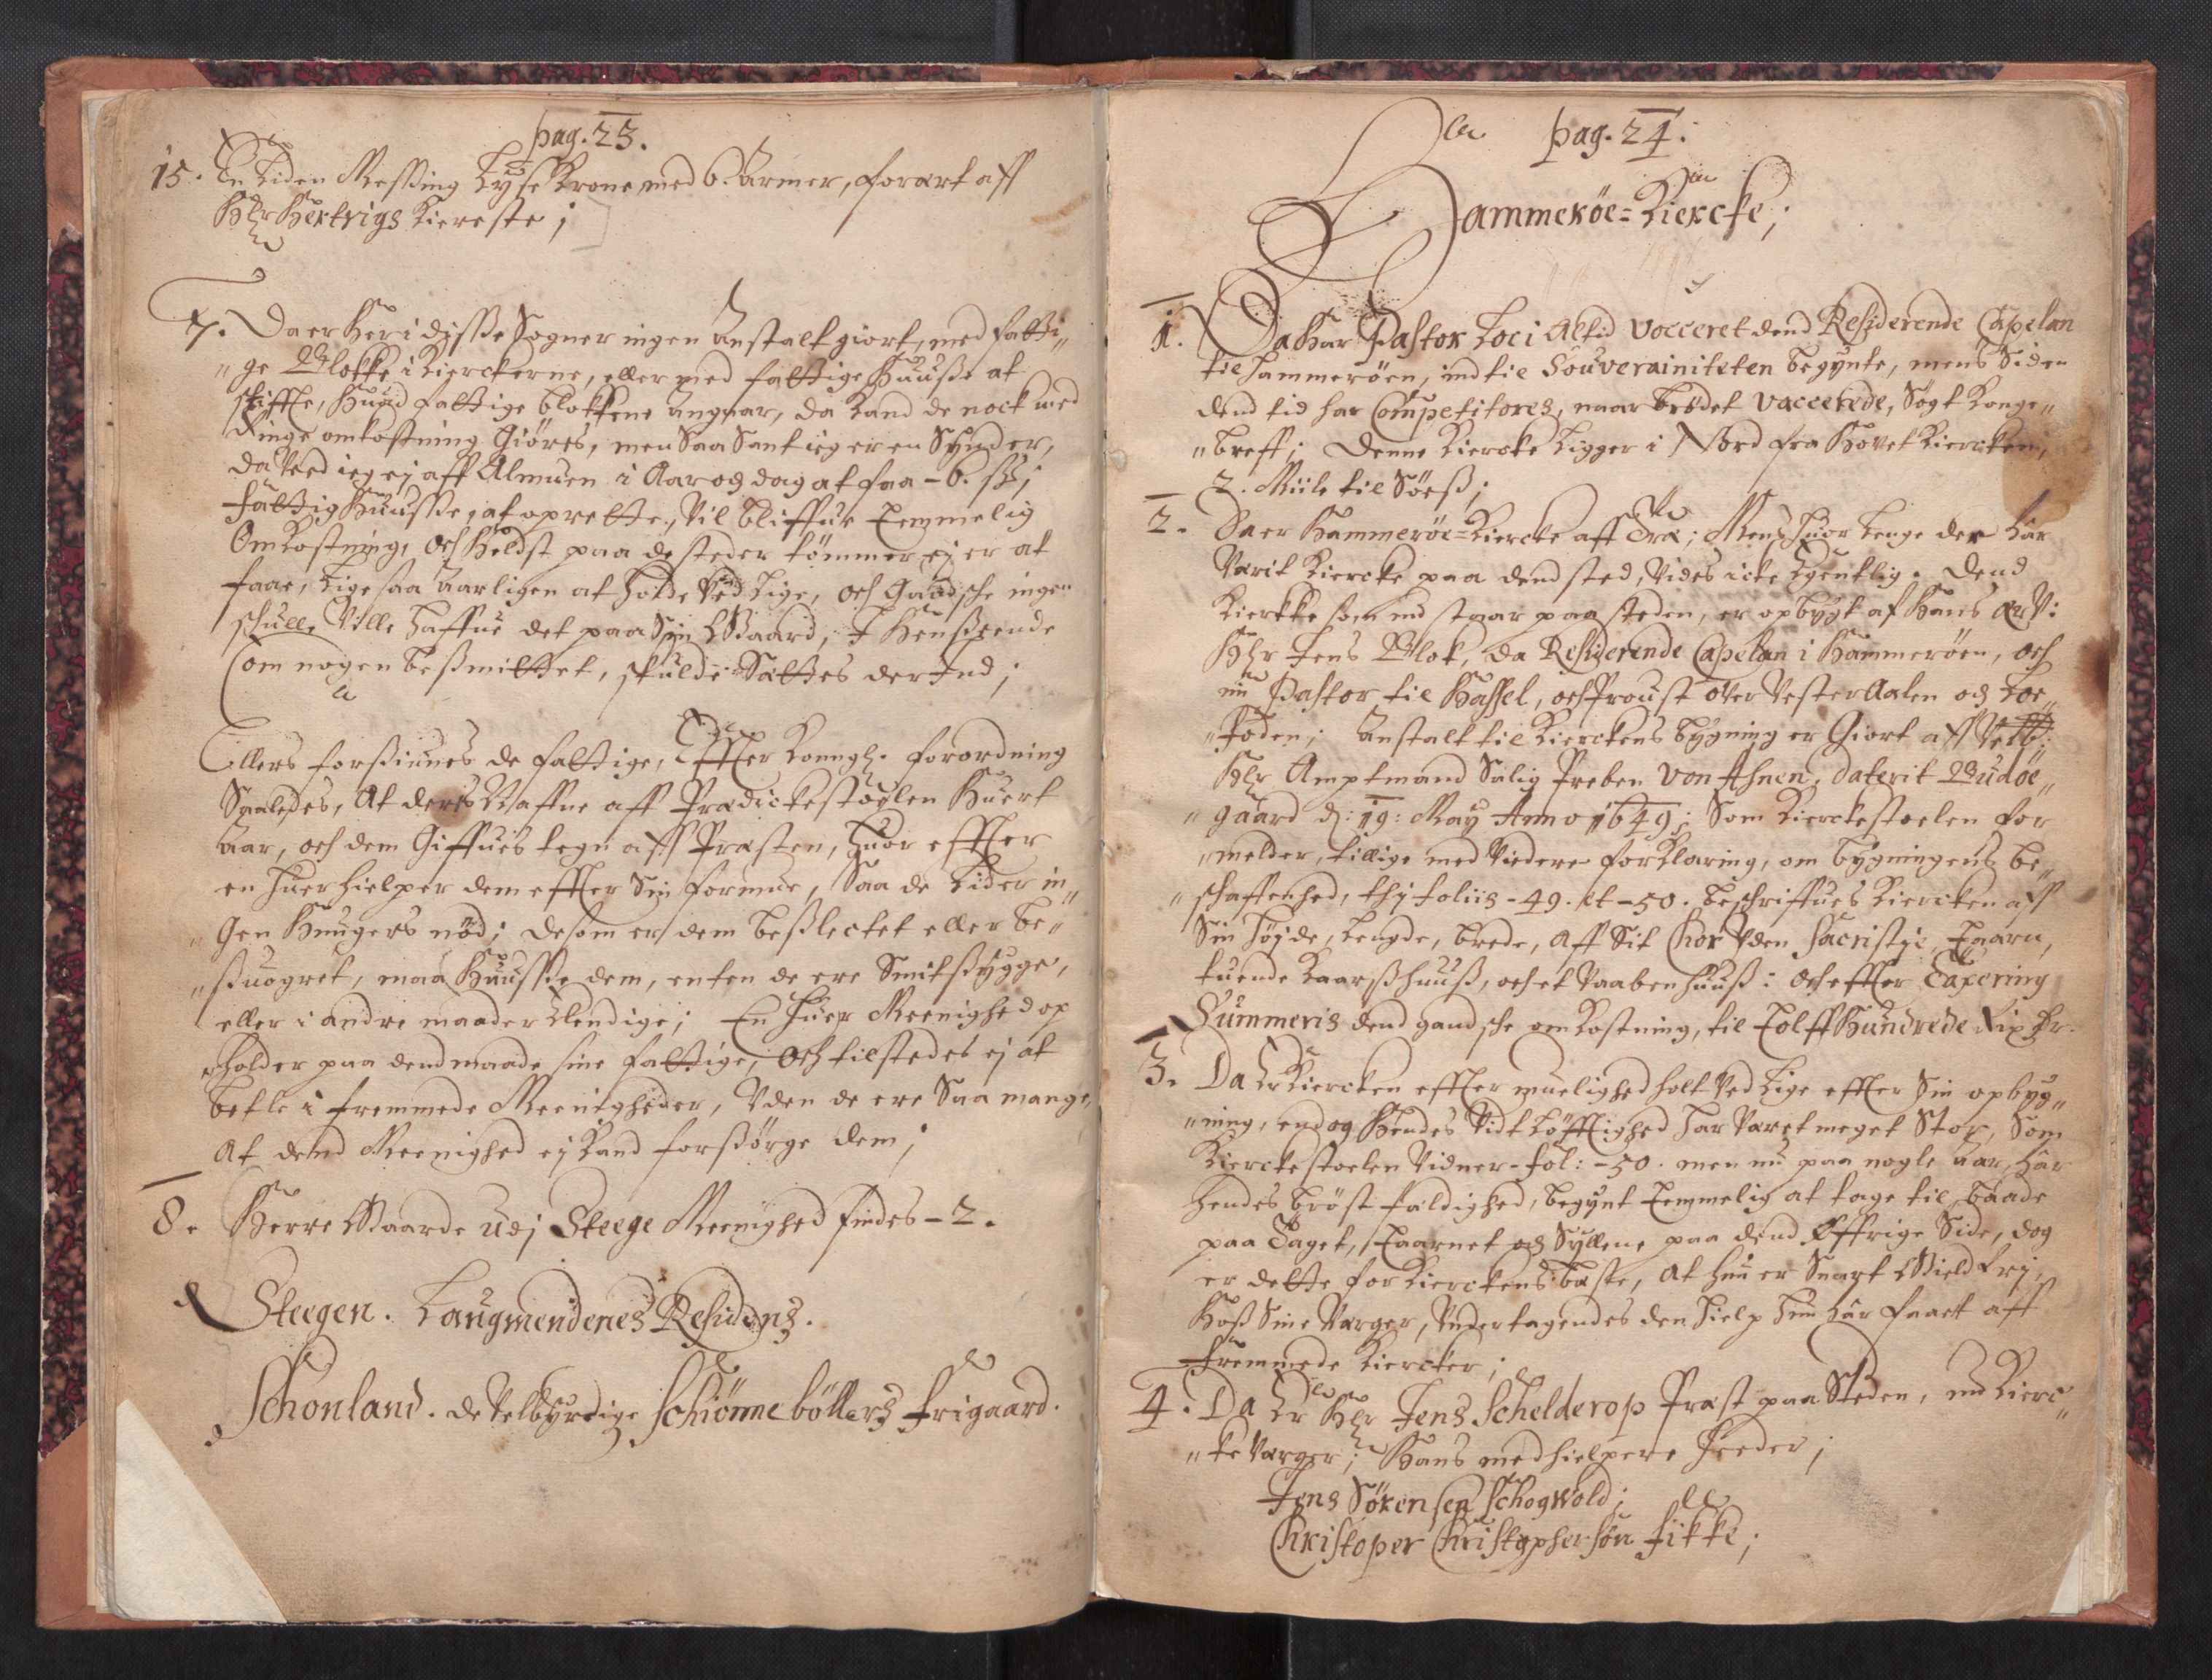 pag. 23.
15. En Liden Messing Lyse Krone med 6. Armer, forært aff
Hr Hertvigs Kiereste;
7. Da er her i disse Sogner ingen Anstalt giort, med fatti„
„ge Blokke i Kierckerne, eller med fattige Huuse at
stiffte, huad fattige blokkene Angaar, da Kand de nock med
Ringe omkostning Giøres, men Saa Sant ieg er en Synder,
da Veed ieg ej aff Almuen i Aar og dag at faa - 6. ß;
Fattig Huusse, at oprette, Vil bliffue Temmelig
Omkostning, och Heldst paa de steder tømmer ej er at
faae, Lige saa Aarligen at Holde Ved Lige, och Gandsche ingen
schulle Ville Haffue det paa Sin Gaard, I Henseende
om nogen besmittet, skulde Sættes der Ind;
Ellers forsiunes de fattige, Effter Konngl. forordning
Saaledes, At deris Naffne aff Prædickestoelen Huert
Aar, och dem Giffues tegn aff Præsten, Huor effter
en huer hielper dem effter Sin formue, Saa de Lider in„
„Gen Hungers nød; de som er dem beslectet eller be„
„suogret, maa Huusse dem, enten de ere Smitsyge,
eller i andre maader Elendige; En huer Meenighed op
„holder paa dend maade sine fattige, och tilstedes ej at
betle i fremmede Meenigheder, Uden de ere Saa mange,
At dend Meenighed ej Kand forsørge dem;
8. Herre Gaarde udj Steege Meenighed findes - 2.
Steegen. Laugmendenes Residens.
Schonland. de Velbyrdige Schiønnebøllers frigaard.
pag. 24.
Hammerøe=Kiercke;
1. Da Har Pastor Loci Altid Vocceret dend Residerende Capelan
til Hammerøen, ind til Souverainiteten begynte, mens Siden
dend tid har Competitores, naar brødet Vaccerede, Søgt Konge„
„breff; Denne Kiercke Ligger i Nord fra Hovet Kiercken,
2. Miile til Søes;
2. Da er Hammerøe=Kiercke aff Træ; Mens huor Lenge der har
Værit Kiercke paa dend sted, Vides icke Egentlig. Dend
Kierkke som nu staar paa steden, er opbygt af Hans
Hr Jens Blok, da Residerende Capelan i Hammerøen, och
nu Pastor til Hassel, och Proust over Vesteraalen og Loe„
„foden; Anstalt til Kierckens bygning er Giort aff Velb:
Hr Amptmand Salig Preben Von Ahnen, daterit Budøe„
„gaard d: 19: May Anno 1649; Som Kierckestoelen for
„melder, tillige med Viedere forklaring, om bygningens be„
„schaffenhed, thj foliis - 49. et - 50. beschriffues Kiercken aff
Sin høyde, Lengde, brede, Aff Sit Chor Uden Sacristie, Taarn,
tuende Kaarshuuß, och et Vaabenhuuß: Och effter Taxering
Summeris dend gandsche omkostning, til Tolff Hundrede Rixdr.
3. Da Er Kiercken effter muelighed holt Ved Lige effter Sin opbyg„
„ning, endog Hendes Vidtløfftighed har Været meget Stor, Som
Kierckestoelen Vidner - fol: - 50. men nu paa nogle Aar, har
hendes brøstfældighed, begynt temmelig at tage til, baade
paa Taget, Taarnet og Syllene paa dend Effrige Side, dog
er dette for Kierckens bæste, At hun er Snart Gieldfrj,
Hoß Sine Værger, Undertagendes den hielp hun har faaet aff
fremmede Kiercker;
4. Da Er Hr Jens Schelderop Præst paa Steden, nu Kierc„
„ke Værger; Hans medhielpere Heeder;
Jens Sørensen Schogwold;
Christoper Christophersøn Fikke;